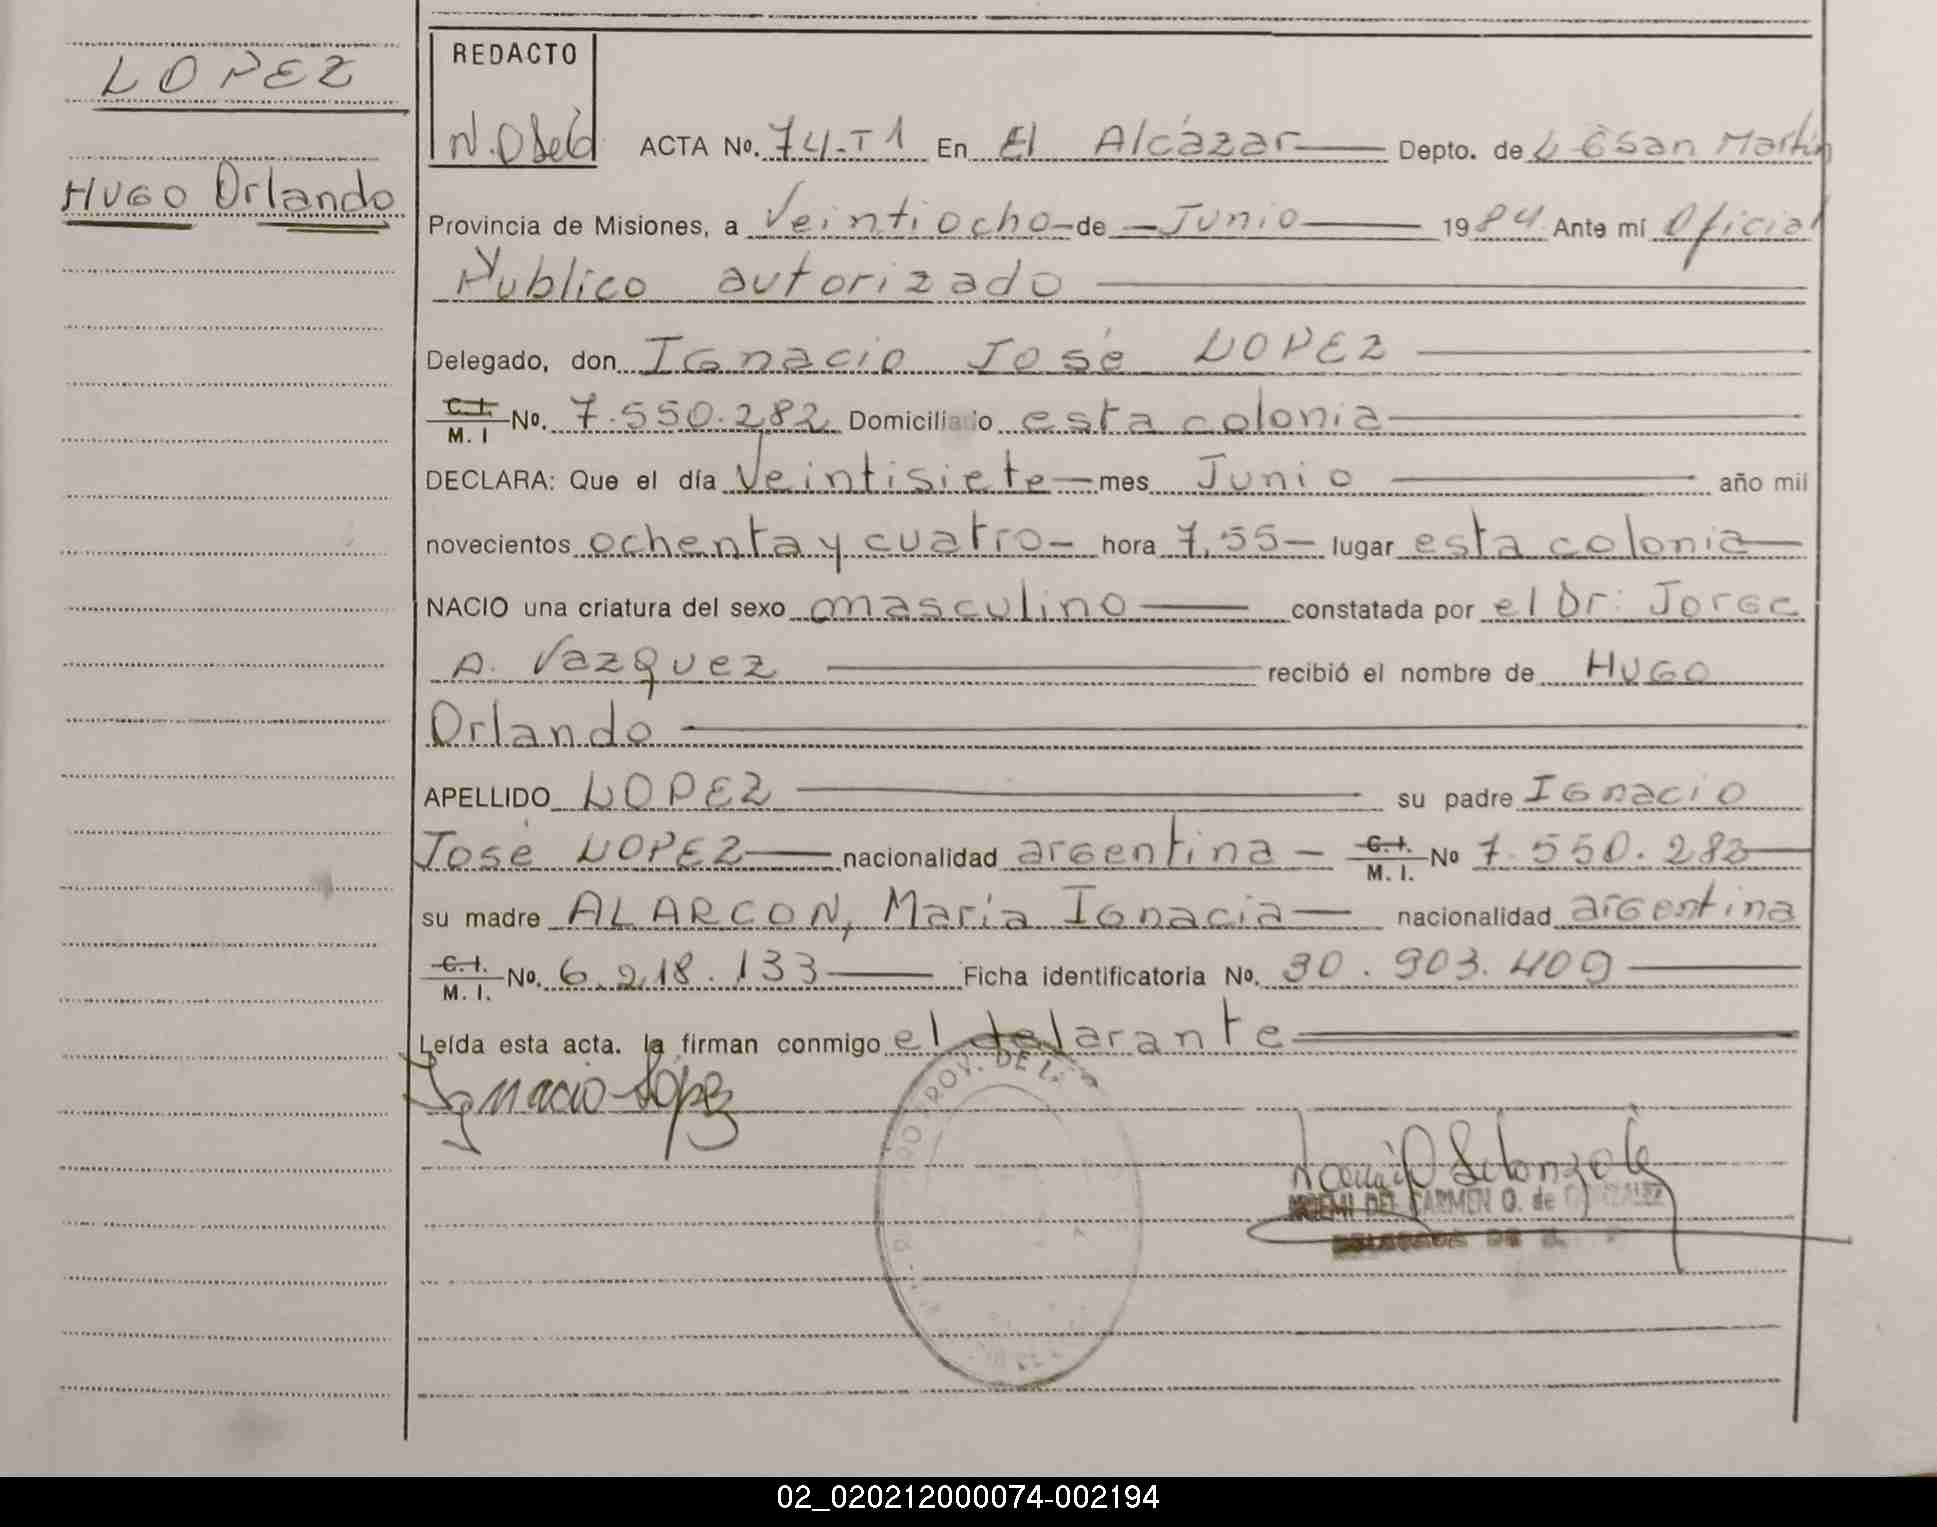 LOPEZ
Hugo Orlando
REDACTO
ACTA No. 74-T1 En El Alcázar Depto. de L G San Martín
Provincia de Misiones, a Veintiocho de Junio 1984 Ante mí Oficial
Publico autorizado
Delegado, don Ignacio José LOPEZ
C. I. M. I No. 7.550.282 Domiciliado esta colonia
DECLARA: Que el día Veintisiete mes Junio año mil
novecientos ochenta y cuatro hora 7,55 lugar esta colonia
NACIO una criatura del sexo masculino constatada por el Dr: Jorge
A. Vazquez recibió el nombre de Hugo
Orlando
APELLIDO LOPEZ su padre Ignacio
José LOPEZ nacionalidad argentina C. I. M. I. No 7.550.282
su madre ALARCON, María Ignacia nacionalidad argentina
C. I. M. I. No. 6.218.133 Ficha identificatoria No. 30.903.409
Leída esta acta. la firman conmigo el delarante
Ignacio López
PROV. DE
NOEMI DEL CARMEN O. de GONZALEZ
DELEGADA DE
02_020212000074-002194